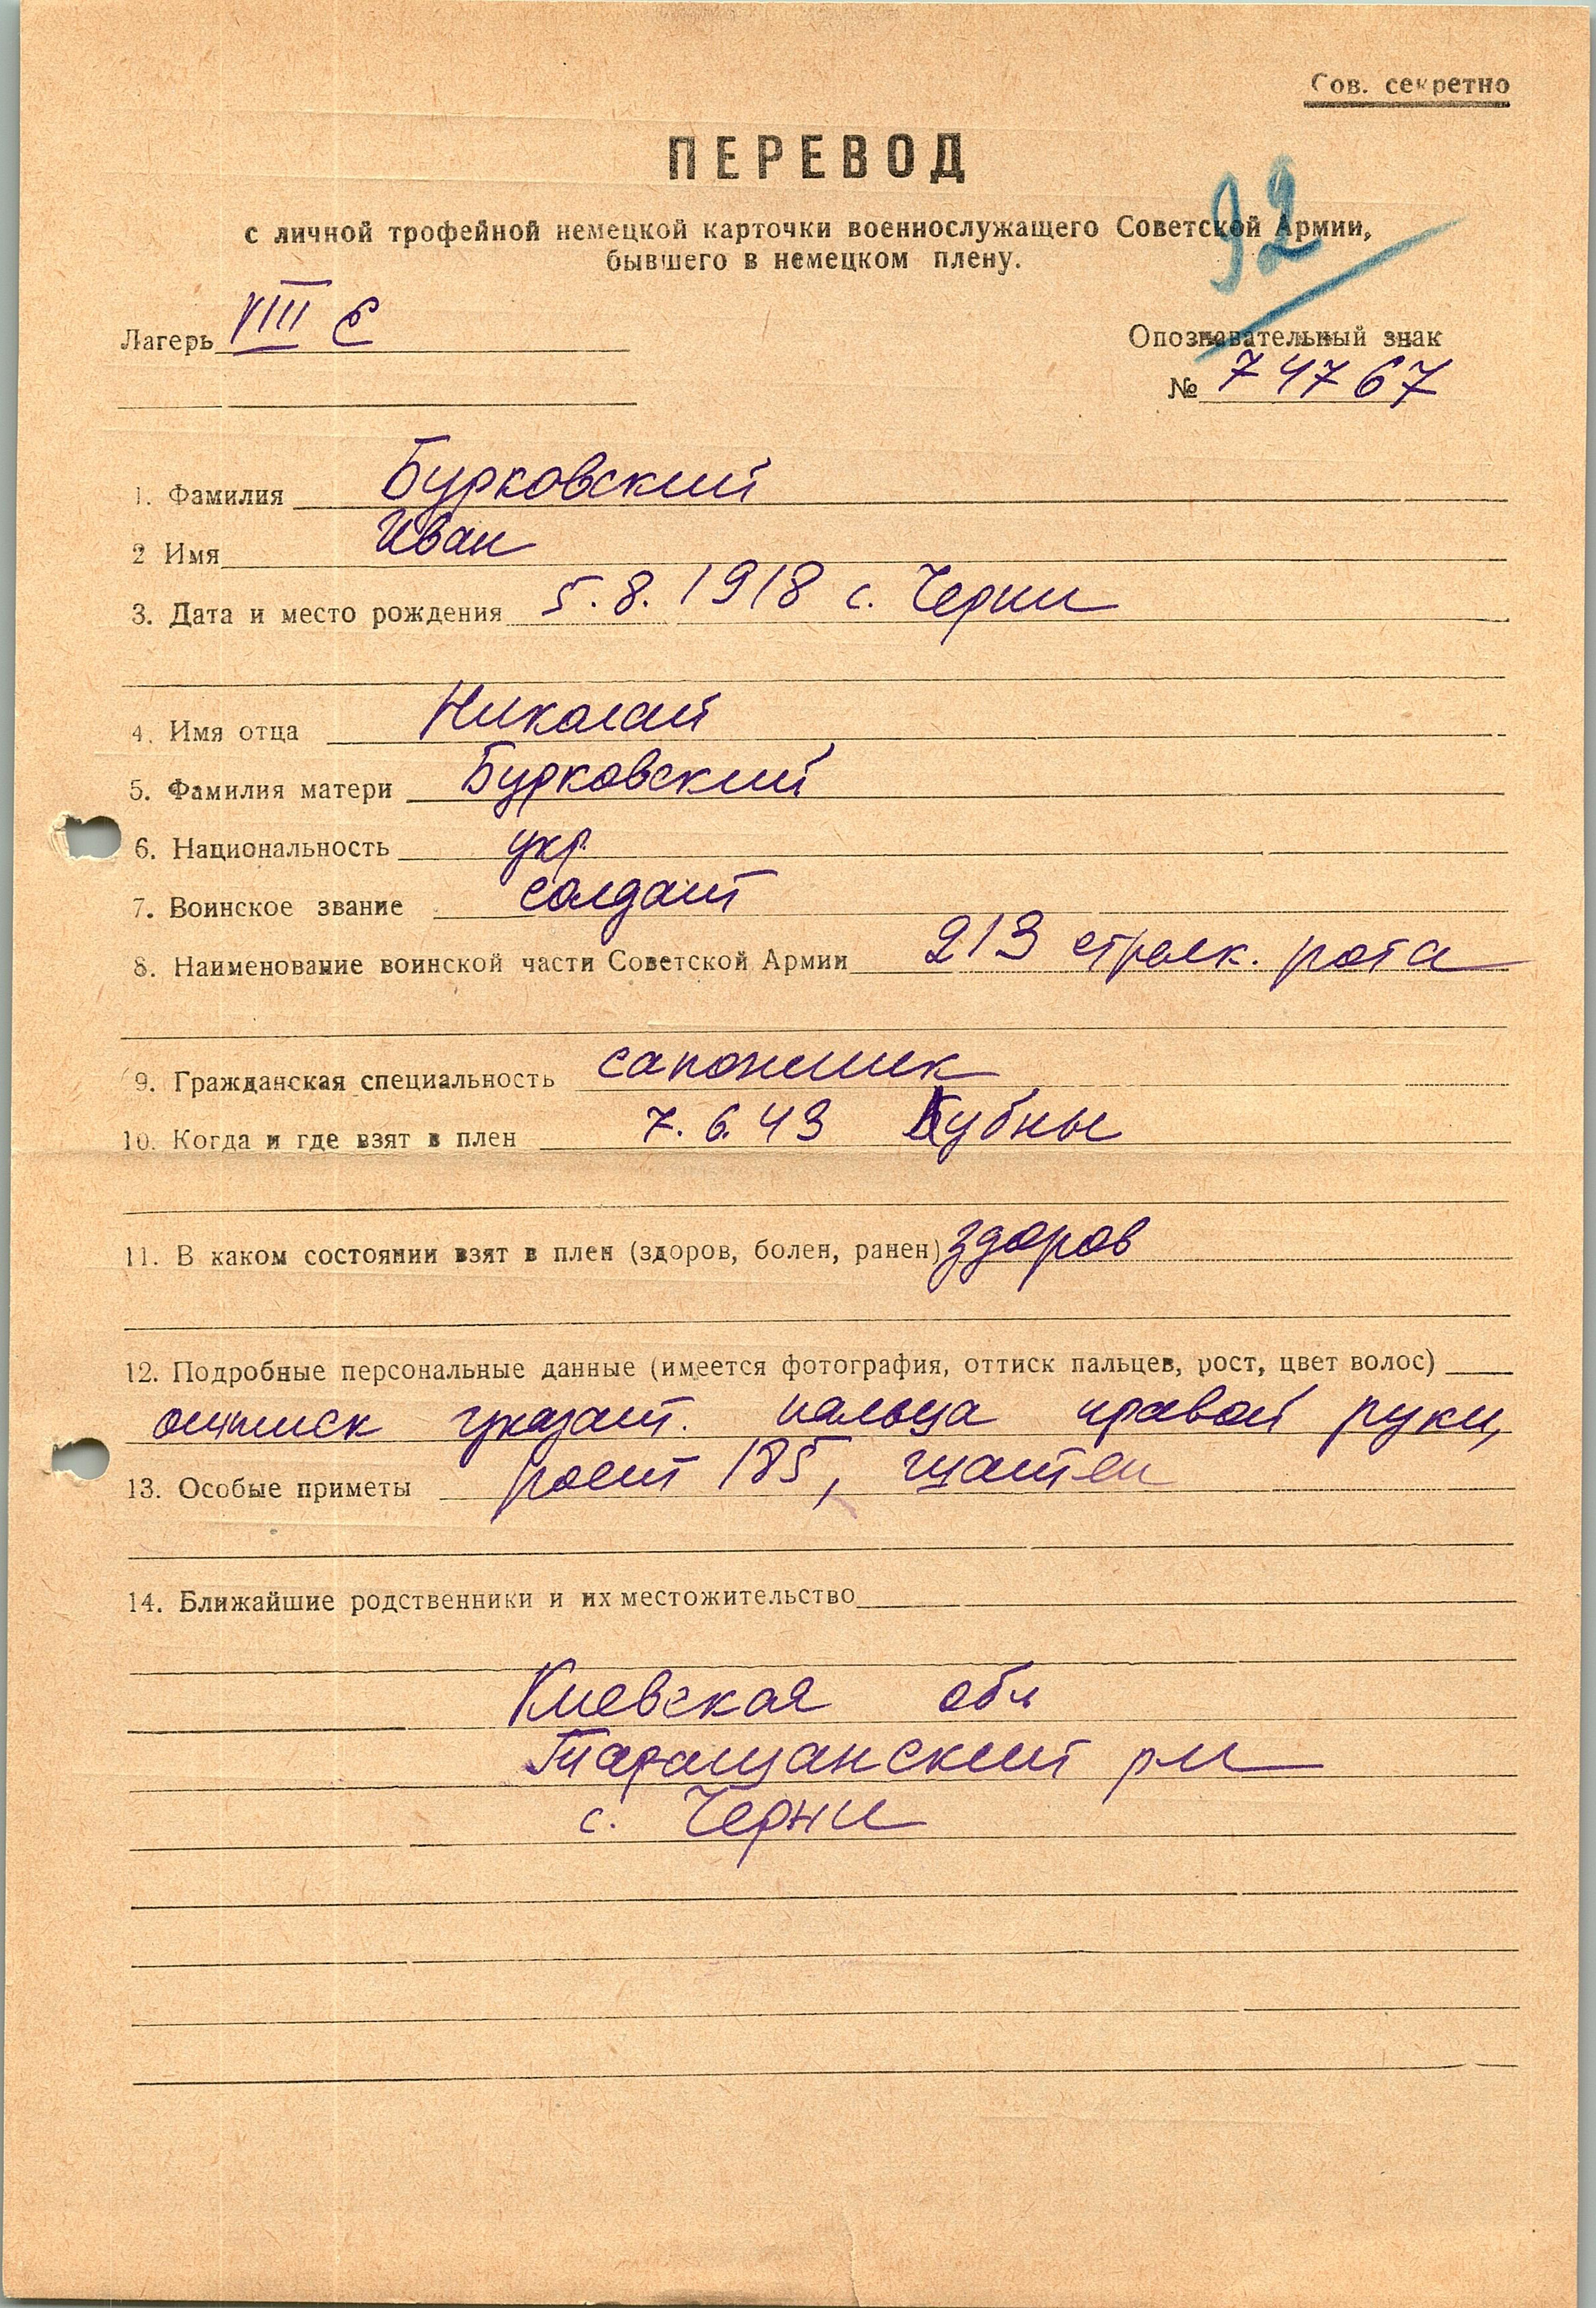 Сов. секретно
ПЕРЕВОД
92
с личной трофейной немецкой карточки военнослужащего Советской Армии,
бывшего в немецком плену.
Лагерь VIII Е
Опознавательный знак
№ 74767
1. Фамилия Бурковский
2 Имя Иван
3. Дата и место рождения 5.8.1918 с. Черни
4. Имя отца Николай
5. Фамилия матери Бурковский
6. Национальность укр.
7. Воинское звание солдат
8. Наименование воинской части Советской Армии 213 стрелк. рота
9. Гражданская специальность сапожник
10. Когда и где взят в плен 7.6.43
11. В каком состоянии взят в плен (здоров, болен, ранен) здоров
12. Подробные персональные данные (имеется фотография, оттиск пальцев, рост, цвет волос)
оттиск указат. пальца правой руки,
13. Особые приметы рост 185, шатен
14. Ближайшие родственники и их местожительство
Киевская обл
Таращанский рн
с. Черни